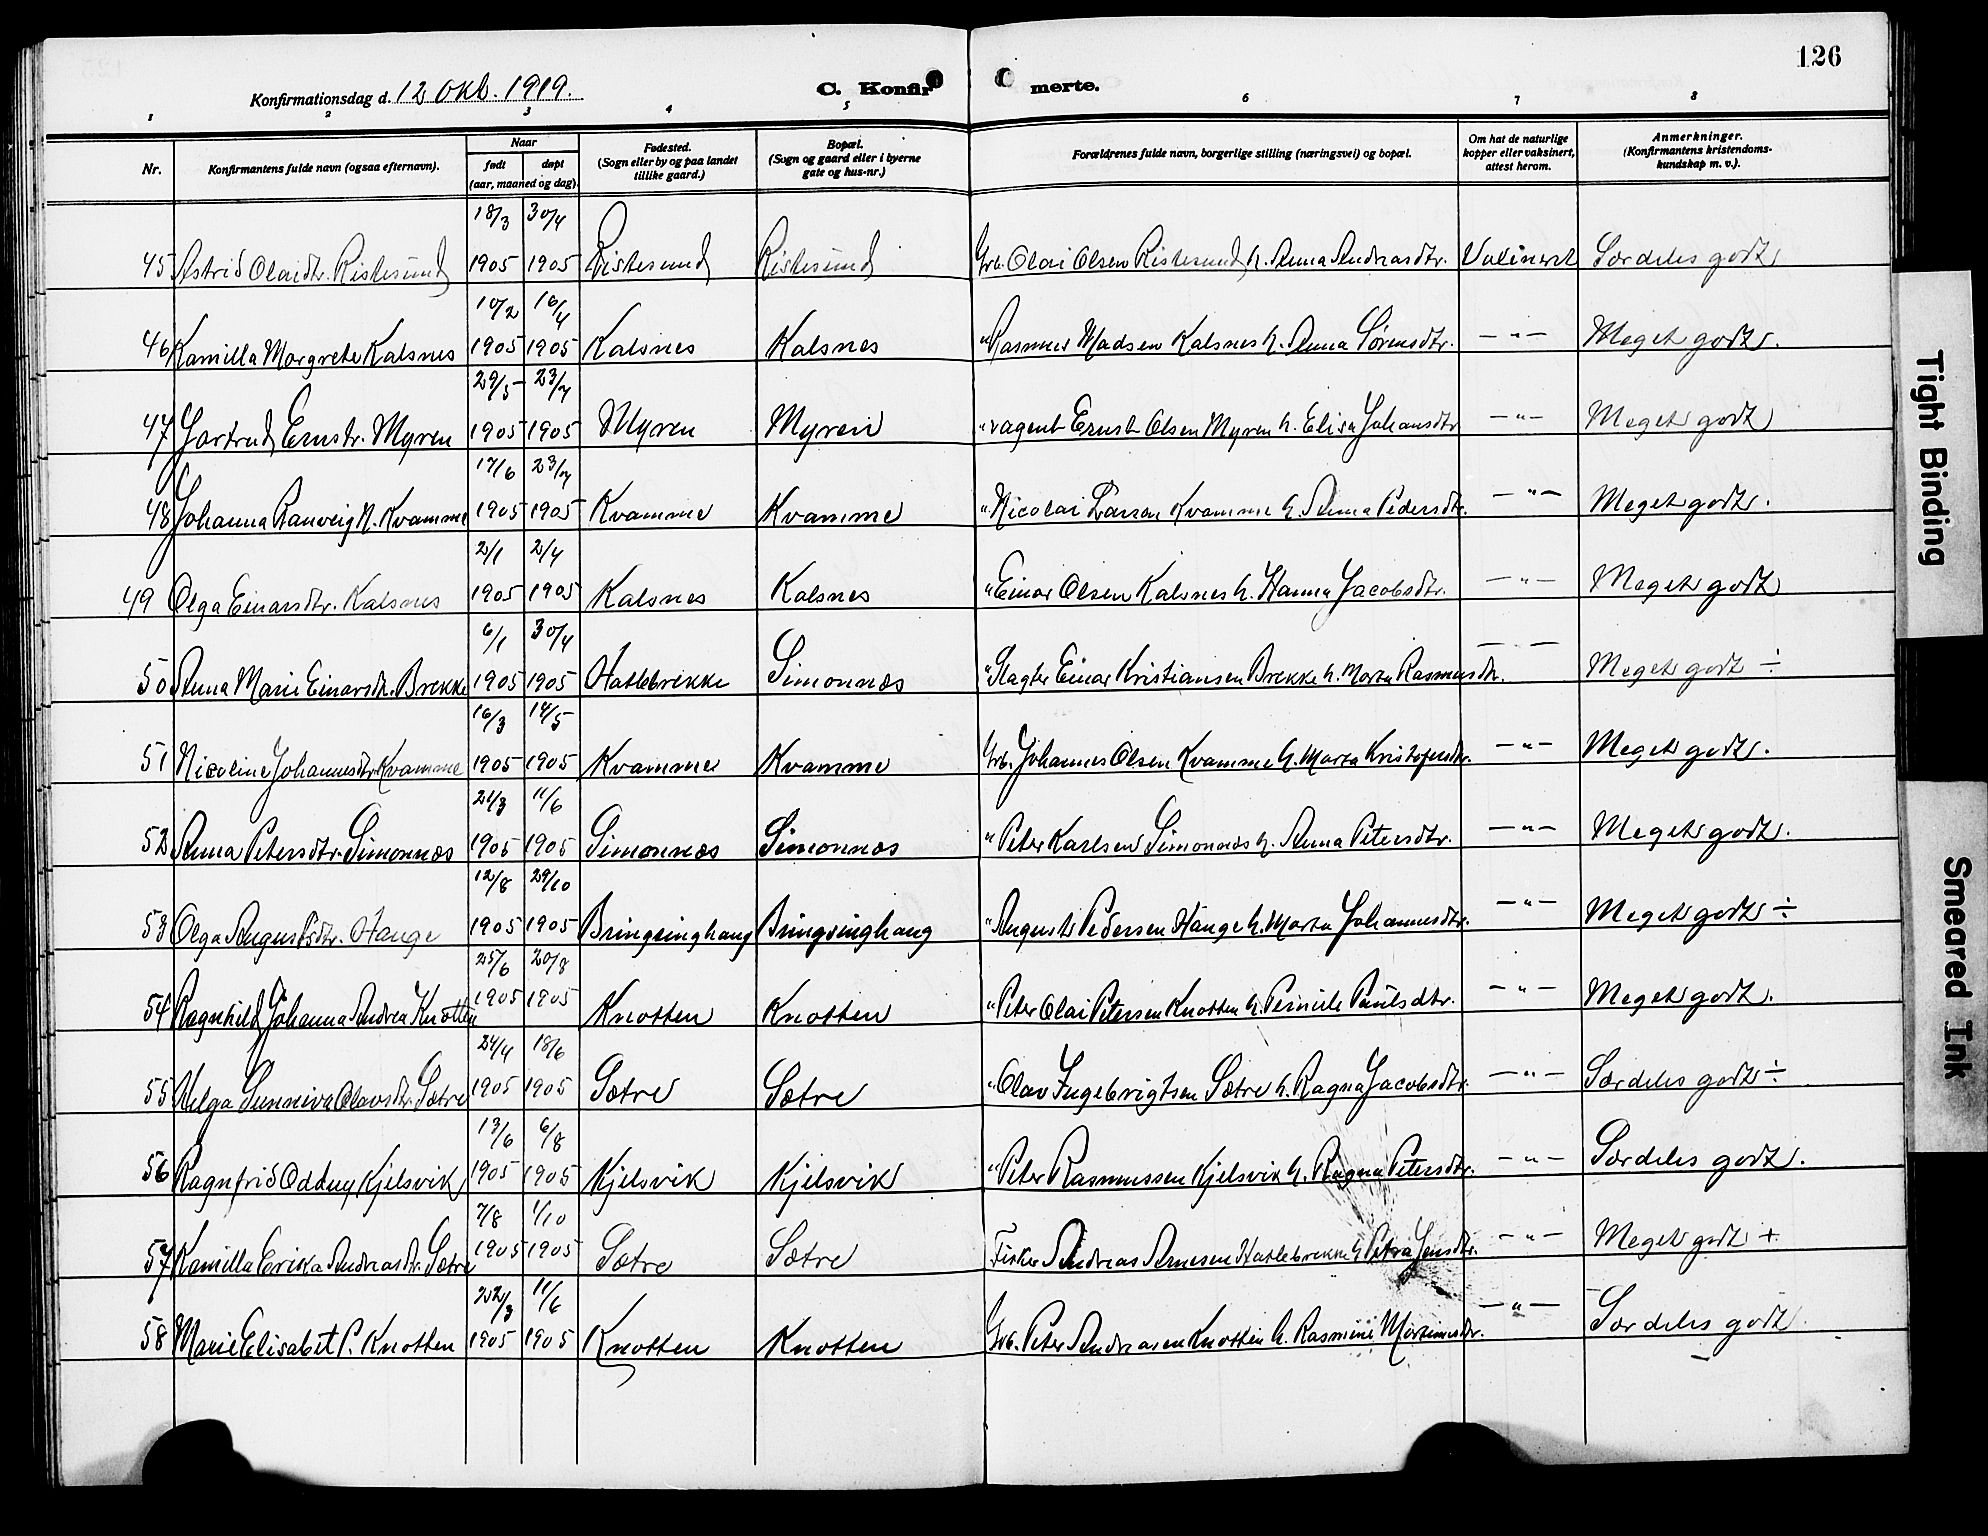 126
Konfirmationsdag d. 12 okt. 1919. C. Konfir merte.
1 2 3 4 5 6 7 8
Nr. Konfirmantens fulde navn (ogsaa efternavn). Naar født døpt (aar, maaned og dag) Fødested. (Sogn eller by og paa landet tillike gaard.) Bopæl. (Sogn og gaard eller i byerne gate og hus-nr.) Forældrenes fulde navn, borgerlige stilling (næringsvei) og bopæl. Om hat de naturlige kopper eller vaksinert, attest herom. Anmerkninger. (Konfirmantens kristendoms-kundskap m. v.).
18/3 30/4
45 Astrid Olaidtr. Ristesund 1905 1905 Ristesund Ristesund Grb. Olai Olsen Ristesund h. Anna Andreasdtr. Særdeles godt
10/2 16/4
46 Kamilla Margrete Kalsnes 1905 1905 Kalsnes Kalsnes " Rasmus Madsen Kalsnes h. Anna Sørensdtr. — " — Meget godt.
29/5 23/7
47 Gertrud Ernstr. Myren 1905 1905 Myren Myren " vagent Ernst Olsen Myren h. Elisa Johansdtr — " — Meget godt
17/6 23/7
48 Johanna Ranveig N. Kvamme 1905 1905 Kvamme Kvamme " Nicolai Larsen Kvamme h. Anna Pedersdtr. — " — Meget godt.
2/1 2/4
49 Olga Einarsdtr. Kalsnes 1905 1905 Kalsnes Kalsnes " Einar Olsen Kalsnes h. Hanna Jacobsdtr. — " — Meget godt
6/1 30/4
50 Anna Marie Einarsdtr. Brekke 1905 1905 Hatlebrekke Simonnæs " Slagter Einar Kristiansen Brekke h. Marta Rasmusdtr. — " — Meget godt ÷
16/3 14/5
51 Nicoline Johannesdtr. Kvamme 1905 1905 Kvamme Kvamme Grb. Johannes Olsen Kvamme h. Marta Kristofersdtr. — " — Meget godt.
21/3 11/6
52 Anna Petersdtr. Simonnæs 1905 1905 Simonnæs Simonnæs " Peter Karlsen Simonnæs h. Anna Petersdtr. — " — Meget godt.
12/8 29/10
53 Olga Augustsdtr. Hauge 1905 1905 Bringsinghaug Bringsinghaug " August Pedersen Hauge h. Marta Johannesdtr. — " — Meget godt ÷
25/6 20/8
54 Ragnhild Johanna Andrea Knotten 1905 1905 Knotten Knotten " Peter Olai Petersen Knotten h. Pernele Paulsdtr. — " — Meget godt.
24/4 18/6
55 Helga Sunniva Olavsdtr. Sætre 1905 1905 Sætre Sætre " Olav Ingebrigtsen Sætre h. Ragna Jacobsdtr. — " — Særdeles godt ÷
13/6 6/8
56 Ragnfrid Oddny Kjelsvik 1905 1905 Kjelsvik Kjelsvik " Peter Rasmussen Kjelsvik h. Ragna Petersdtr. — " — Særdeles godt.
7/8 1/10
57 Kamilla Erika Andreasdtr. Sætre 1905 1905 Sætre Sætre Fisker Andreas Arnesen Hatlebrekke h. Petra Jensdtr. — " — Meget godt +
22/3 11/6
58 Marie Elisabet P. Knotten 1905 1905 Knotten Knotten Grb. Peter Andreasen Knotten h. Rasmine Martinusdtr. — " — Særdeles godt.
Tight Binding
Smeared Ink